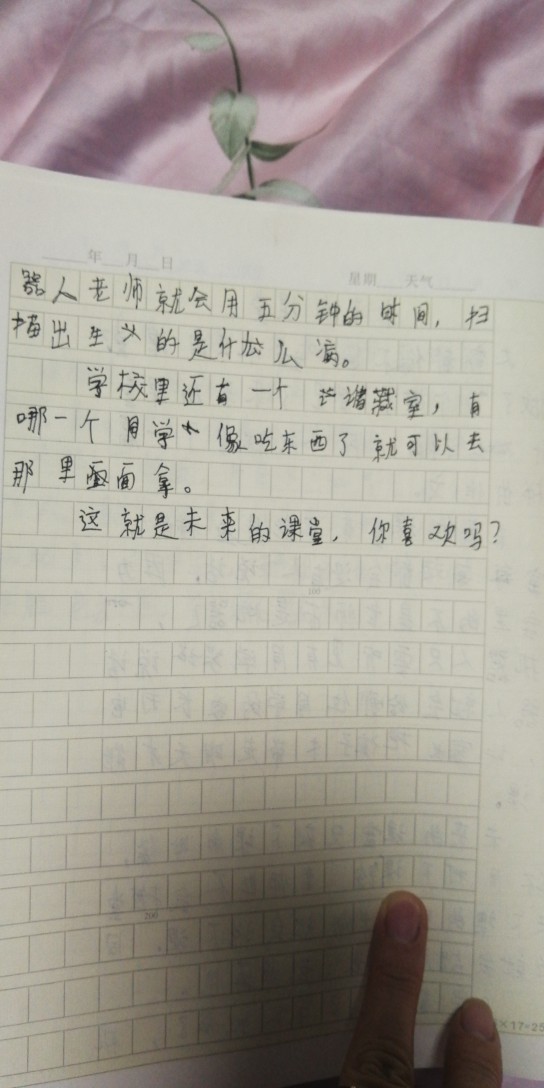 年 月 日
星期 天气
器人老师就会用五分钟的时间，扫
描出生的是什么病。
学校里还有一个 诸藏室，有
哪一个同学 像吃东西了就可以去
那里面拿。
这就是未来的课堂，你喜欢吗？
100
200
×17=25